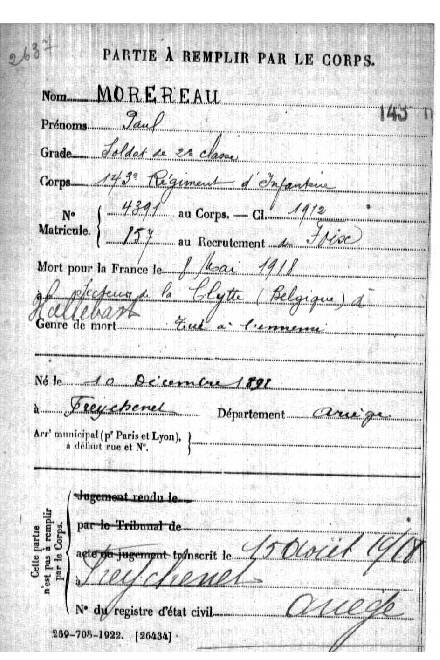 2637
PARTIE À REMPLIR PAR LE CORPS.
Nom MOREREAU
145
Prénoms Paul
Grade Soldat de 2e classe
Corps 143e Régiment d'Infanterie
N° Matricule. { 4391 au Corps. — Cl. 1912
157 au Recrutement Foix
Mort pour la France le 8 Mai 1918
à secteur de la Clytte (Belgique) à
Hallebast
Genre de mort Tué à l'ennemi
Né le 10 Décembre 1892
à Freychenet Département Ariège
Arrt municipal (pr Paris et Lyon),
à défaut rue et N°.
Cette partie n'est pas à remplir par le Corps.
Jugement rendu le
par le Tribunal de
acte ou jugement transcrit le 15 Août 1918
à Freychenet
Ariège
N° du registre d'état civil
269-708-1922. [26434]